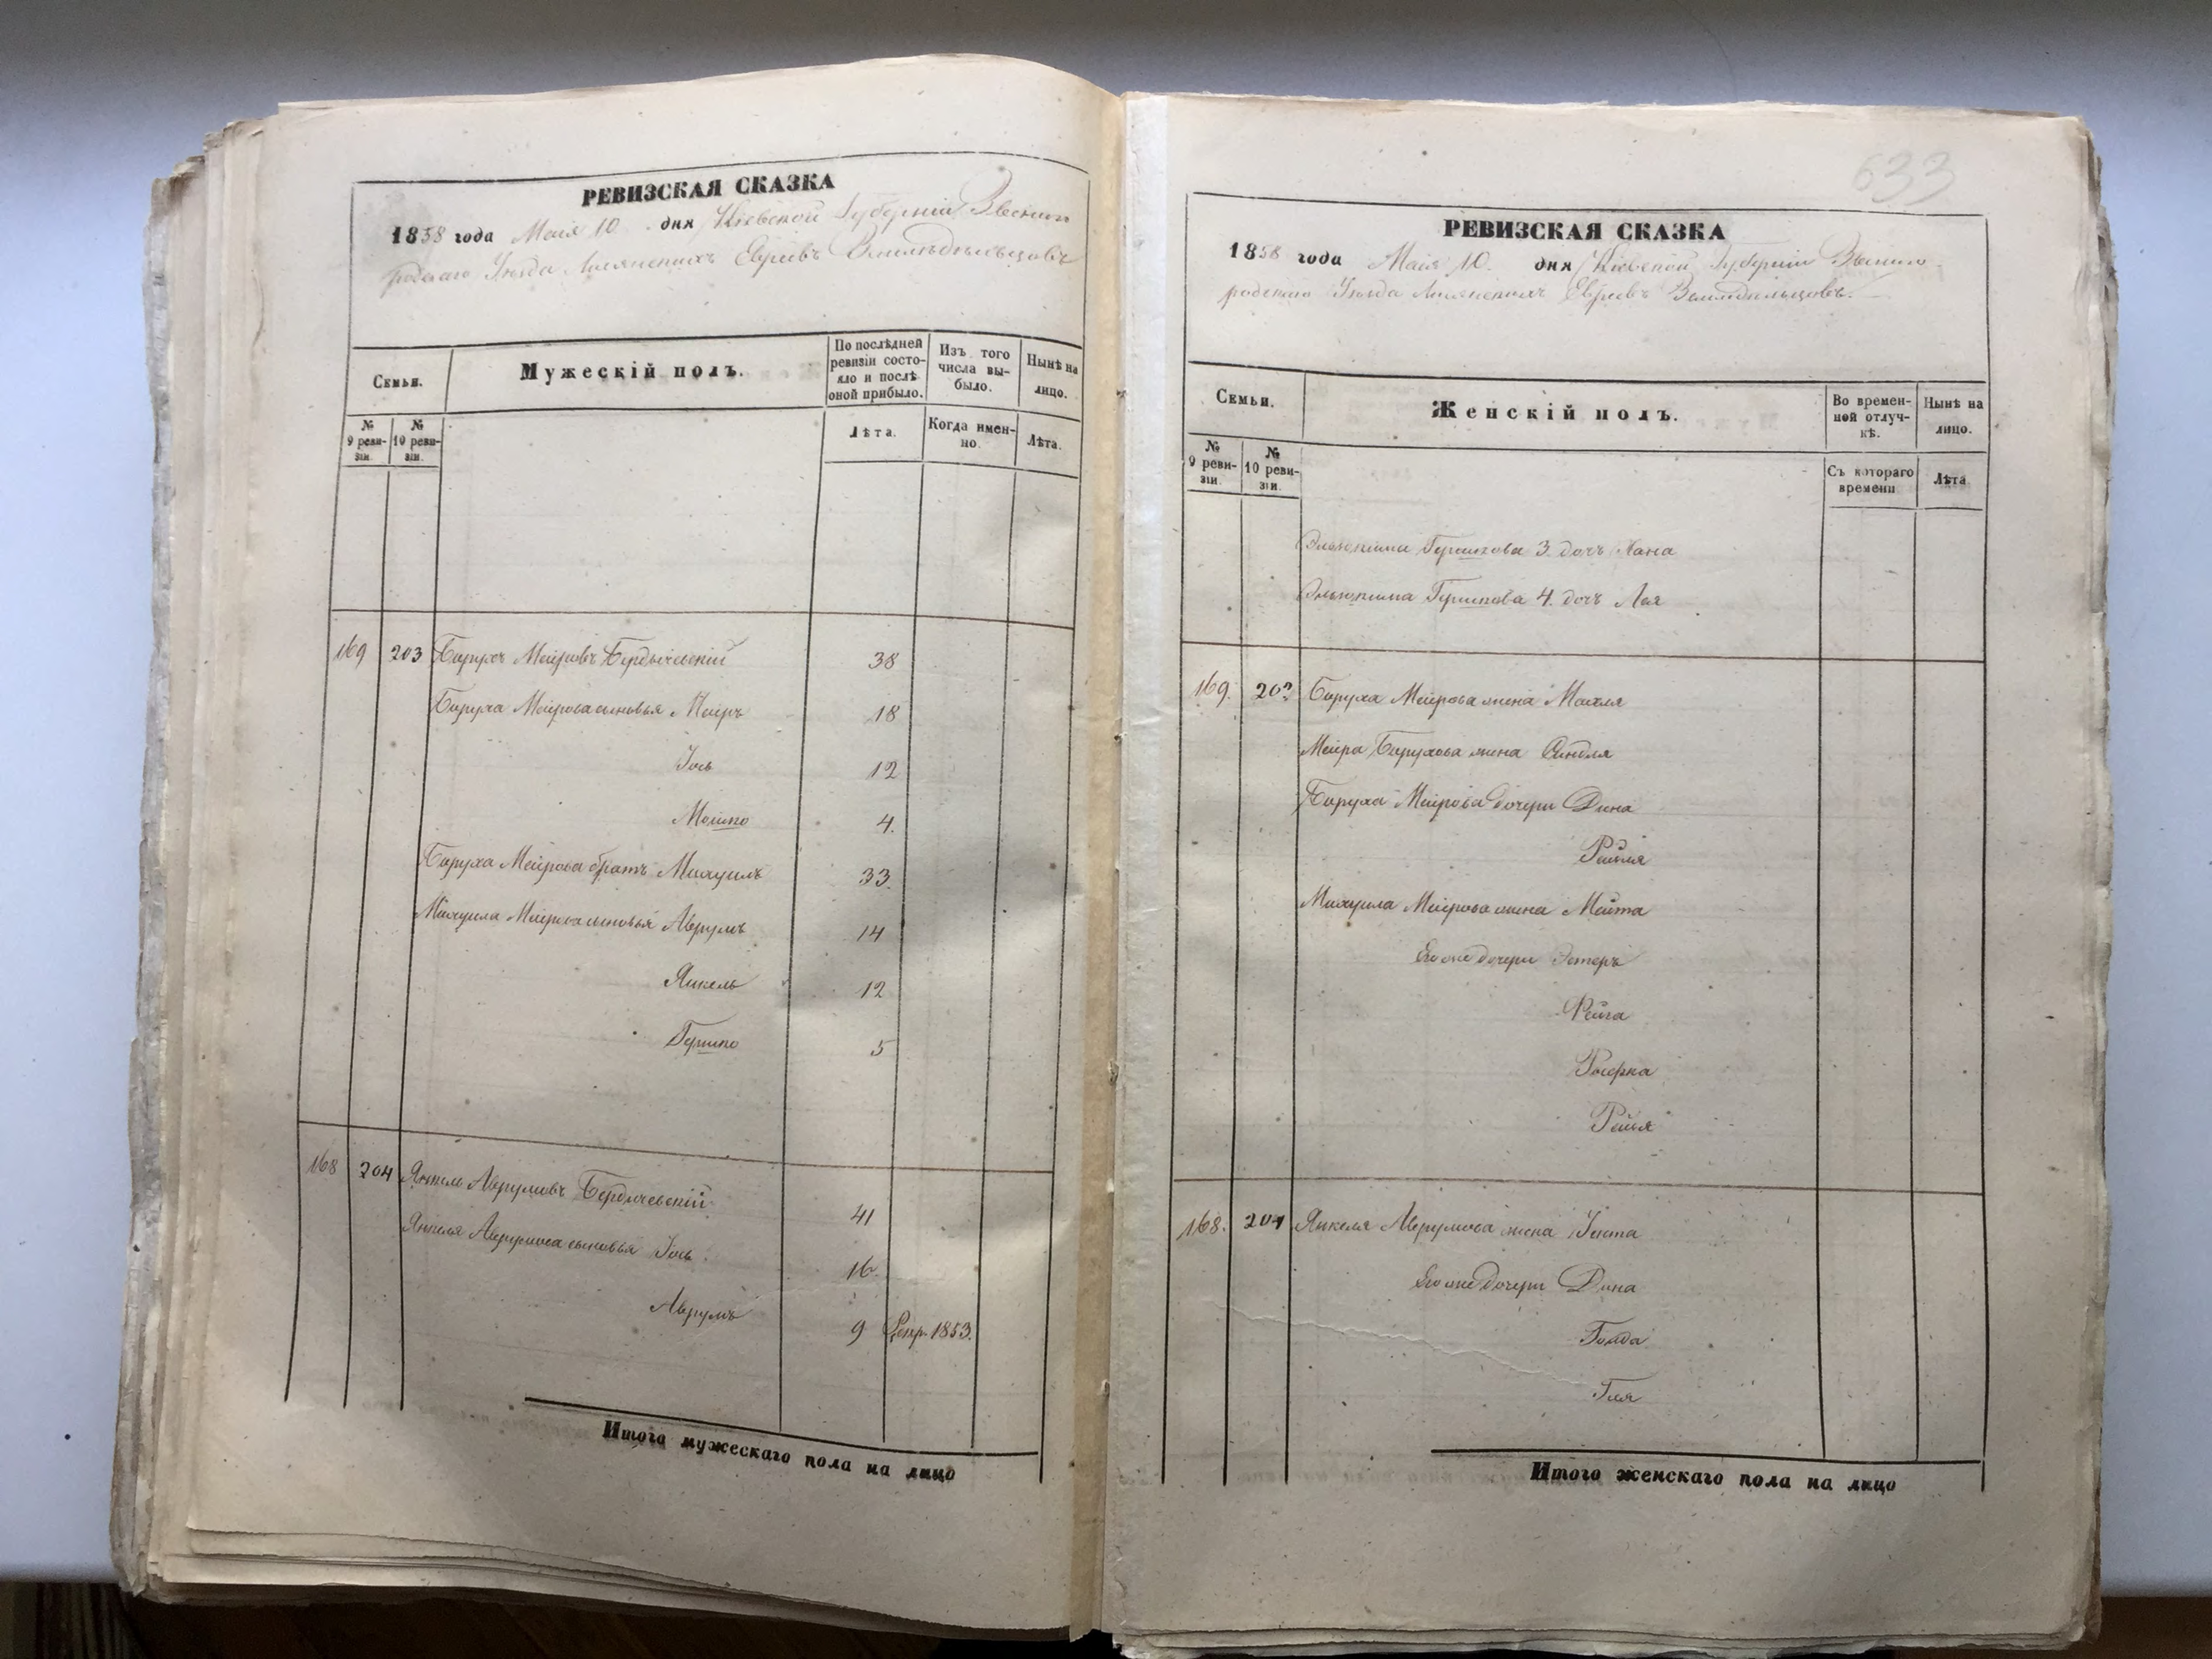 РЕВИЗСКАЯ СКАЗКА
1858 года Маія 10 дня Кіевской Губерніи Звениго
родскаго Уѣзда Лисянскихъ Евреевъ Землѣдѣльцовъ
Семьи.
Мужескій полъ.
По послѣдней ревизіи состояло и послѣ оной прибыло.
Изъ того числа выбыло.
Нынѣ на лицо.
№ 9 ревизіи.
№ 10 ревизіи.
Лѣта.
Когда именно.
Лѣта.
169 203 Барухъ Меировъ Бердичевскій 38
Баруха Меирова сыновья Меиръ 18
Іось 12
Мошко 4.
Баруха Меирова братъ Михуиль 33.
Михуила Меирова сыновья Аврумъ 14
Янкель 12
Гершко 5
168 204 Янкель Аврумовъ Бердичевскій 41
Янкеля Аврумова сыновья Іось. 16.
Аврумъ 9 1853.
Итого мужескаго пола на лицо
633
РЕВИЗСКАЯ СКАЗКА
1858 года Маія 10. дня Кіевской Губерніи Звениго
родскаго Уѣзда Лисянскихъ Евреевъ Землѣдѣльцовъ.
Семьи.
Женскій полъ.
Во временной отлучкѣ.
Нынѣ на лицо.
№ 9 ревизіи.
№ 10 ревизіи.
Съ котораго времени
Лѣта
Гершкова 3. дочь Хана
Гершкова 4. дочь Лея
169. 203 Баруха Меирова жена Махля
Меира Барухова жена Синдля
Баруха Меирова дочери Дина
Рейзля
Михуила Меирова жена Мейта
Его же дочери Эстеръ
Фейга
Рейзя
168. 204 Янкеля Аврумова жена Юста
Его же дочери Дина
Голда
Гея
Итого женскаго пола на лицо